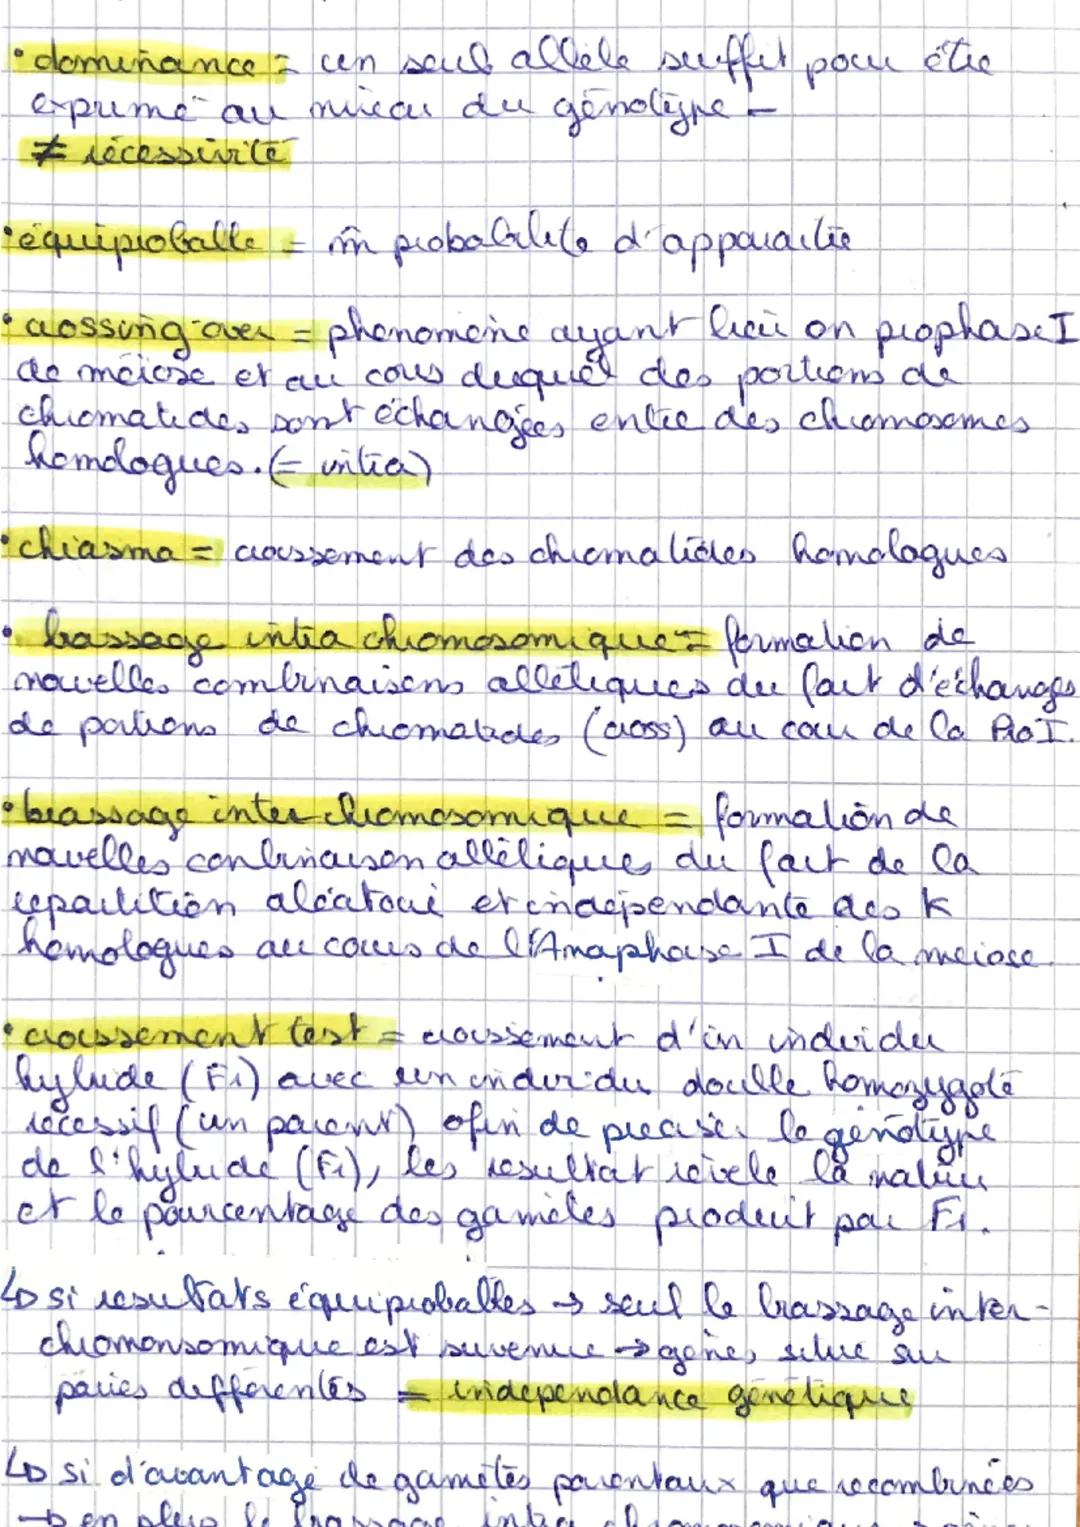 • dominance = un seul allèle suffit pour être
exprimé au niveau du génotype -
≠ récessivité
• équiprobable = m̂ probabilité d'apparaitre
• crossing-over = phénomène ayant lieu en prophase I
de méiose et au cours duquel des portions de
chromatides sont échangées entre des chromosomes
homologues. (= intra)
• chiasma = croissement des chromatides homologues
• brassage intra chromosomique = formation de
nouvelles combinaisons alléliques du fait d'échanges
de portions de chromatides (cross) au cour de la Pro I.
• brassage inter chromosomique = formation de
nouvelles conbinaison alléliques du fait de la
répartition aléatoire et indépendante des K
homologues au cours de l'Anaphase I de la méiose.
• croissement test = croissement d'in individu
hybride (F1) avec un individu double homozygote
récessif (un parent) afin de préciser le génotype
de l'hybride (F1), les resultat révèle la nature
et le pourcentage des gamètes produit par F1.
↳ si resultats équiprobables → seul le brassage inter-
chromonsomique est survenue → gènes situé sur
paires différentes = indépendance génétique
↳ si d'avantage de gamètes parentaux que recombinées
→ en plus le brassage intra